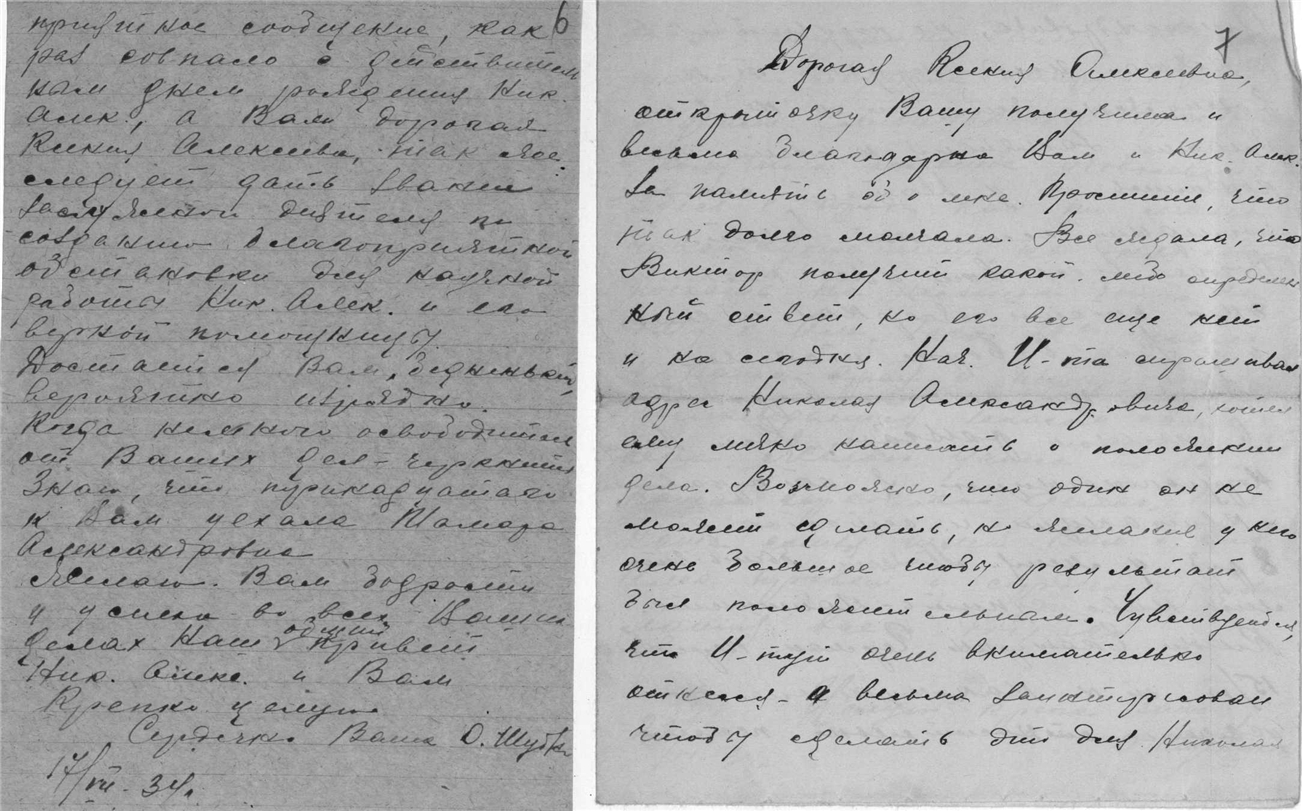 6
приятное сообщение, как
раз совпало с действитель
ным днем рождения Ник.
Алек., а Вам дорогая
Ксения Алексеевна, так же
следует дать звание
заслуженной деятеля по
созданию благоприятной
обстановки для научной
работы Ник. Алек. и его
верной помощницы.
Достается Вам, бедненькой,
вероятно изрядно.
Когда немного освободитесь
от Ваших дел - черкните
Знаю, что тринадцатого
к Вам уехала Тамара
Александровна
Желаю. Вам бодрости
и успеха во всех Ваших
делах Наш общий привет
Ник. Алекс. и Вам
Крепко целую
Сердечно Ваша О.
17/VII - 34г.
7
Дорогая Ксения Алексеевна,
открыточку Вашу получила и
весьма благодарна Вам и Ник. Алек.
за память об о мне. Простите, что
так долго молчала. Все ждала, что
Виктор получит какой-либо определен
ный ответ, но его все еще нет
и на сегодня. Нач. И-та спрашивал
адрес Николая Александровича, хотел
ему лично написать о положении
дела. Возможно, что один он не
может сделать, но желание у него
очень большое чтобы результат
был положительным. Чувствуется,
что И-тут очень внимательно
отнесся и весьма заинтересован
чтобы сделать это для Николая